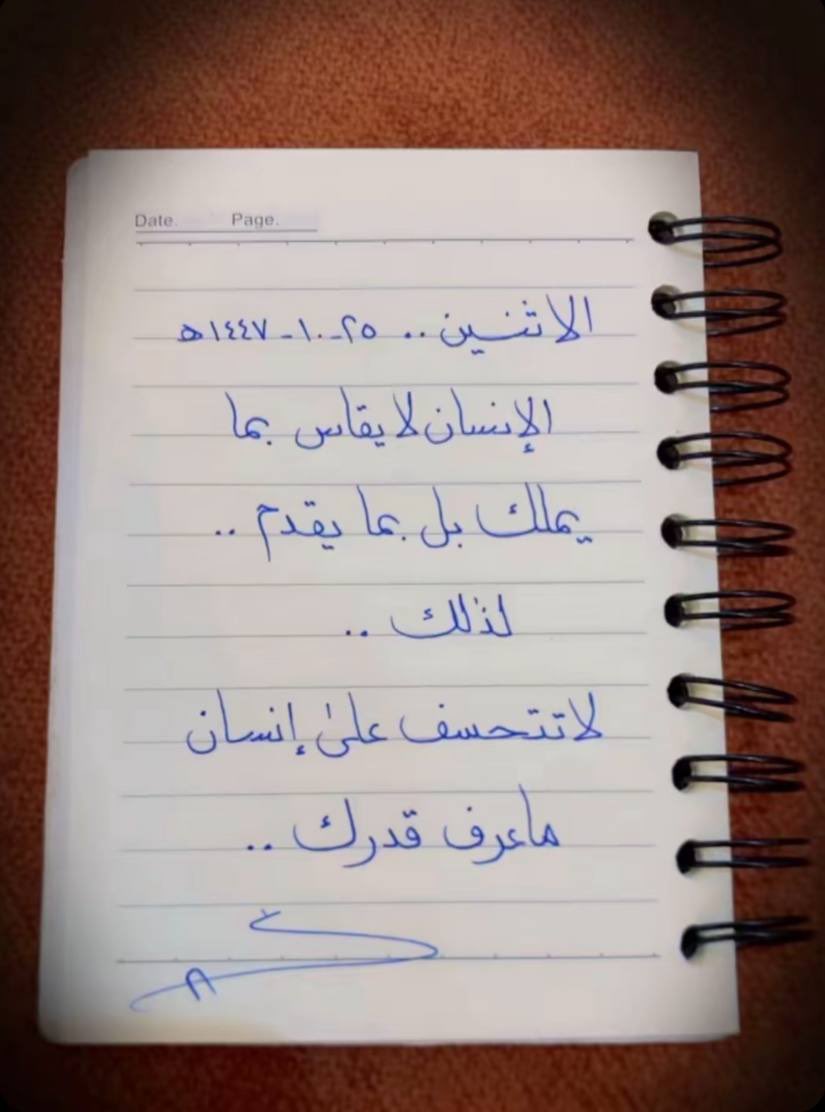 Date. Page.
الاثنين .. ٢٥-١٠-١٤٤٧ه
الإنسان لا يقاس بما
يملك بل بما يقدم ..
لذلك ..
لا تتحسف على إنسان
ماعرف قدرك ..